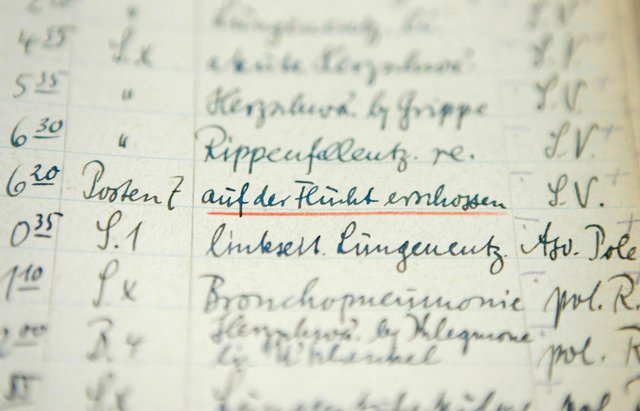 Lungenentz. re.
4 25 S.x akute Herzschwä. S.V.
5 35 " Herzschwä. by Grippe S.V.
6 30 " Rippenfellentz. re. S.V.
6 20 Posten 7 auf der Flucht erschossen S.V.
0 35 S.1 linkseit. Lungenentz. Aso. Pole
1 10 S x Bronchopneumonie pol. R.
2 00 B.4 Herzschwä. by Phlegmone pol. R
S x